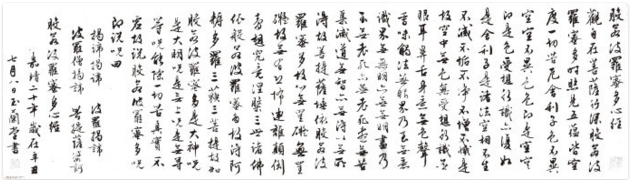 般若波羅蜜多心經
觀自在菩薩行深般若波
羅蜜多時照見五蘊皆空
度一切苦厄舍利子色不異
空空不異色色即是空空
即是色受想行識亦復如
是舍利子是諸法空相不生
不滅不垢不淨不增不減是
故空中無色無受想行識無
眼耳鼻舌身意無色聲
香味觸法無眼界乃至無意
識界無無明亦無無明盡乃
至無老死亦無老死盡無苦
集滅道無智亦無得以無所
得故菩提薩埵依般若波
羅蜜多故心無罣礙無罣
礙故無有恐怖遠離顛倒
夢想究竟涅槃三世諸佛
依般若波羅蜜多故得阿
耨多羅三藐三菩提故知
般若波羅蜜多是大神咒
是大明咒是無上咒是無等
等咒能除一切苦真實不
虛故說般若波羅蜜多咒
即說咒曰
揭諦揭諦 波羅揭諦
波羅僧揭諦 菩提薩婆訶
般若波羅蜜多心經
嘉靖二十年歲在辛丑
七月八日玉蘭堂書